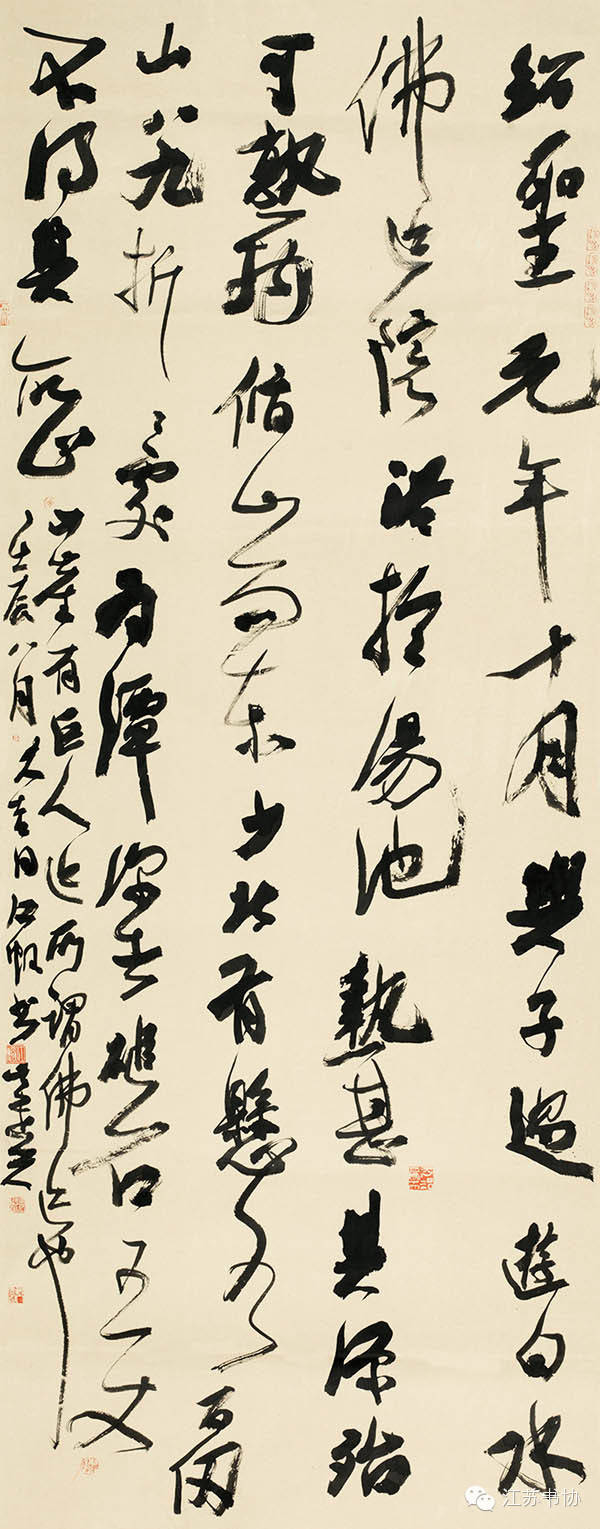 紹聖元年十月與子過遊白水
佛迹院浴於湯池熱甚其源殆
可熟物循山而東少北有懸水百仞
山八九折々處為潭深者磓石五丈
不得其所止水崖有巨人迹所謂佛迹也
壬辰八月大吉日書
江苏书协